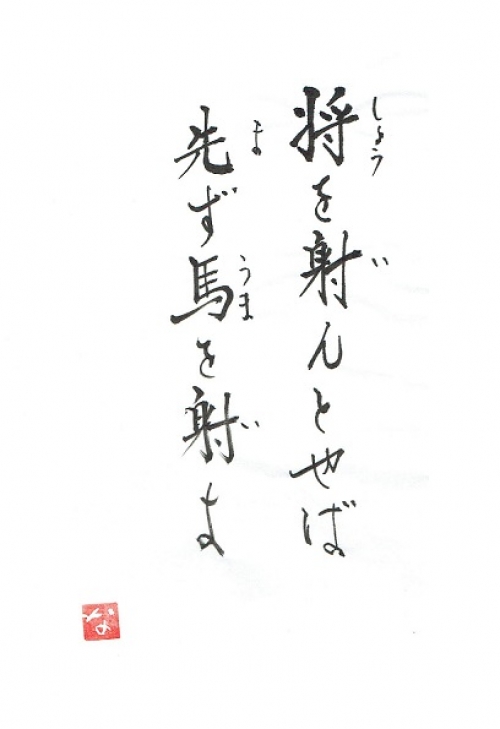 将を射んとせば
しょう い
先ず馬を射よ
ま うま い
な